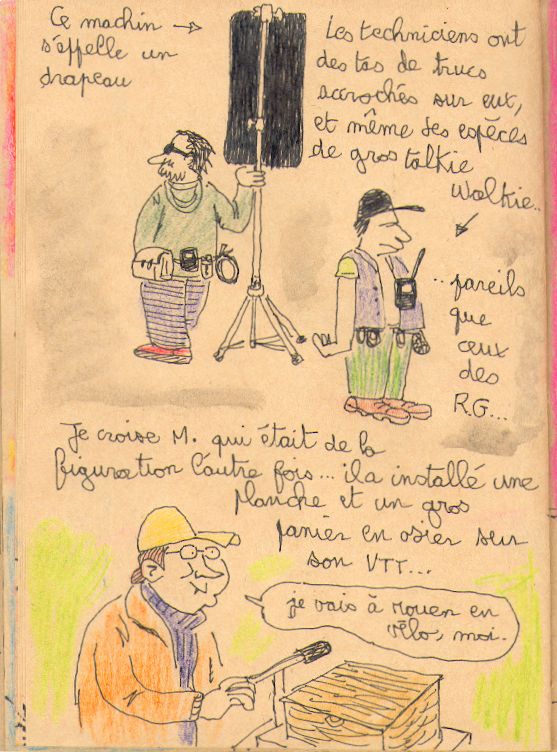 Ce machin
s'appelle un
drapeau
Les techniciens ont
des tas de trucs
accrochés sur eux,
et même des espèces
de gros talkie
Walkie..
..pareils
que
ceux
des
R.G...
Je croise M. qui était de la
figuration l'autre fois... il a installé une
planche et un gros
panier en osier sur
son VTT...
je vais à Rouen en
vélo, moi.